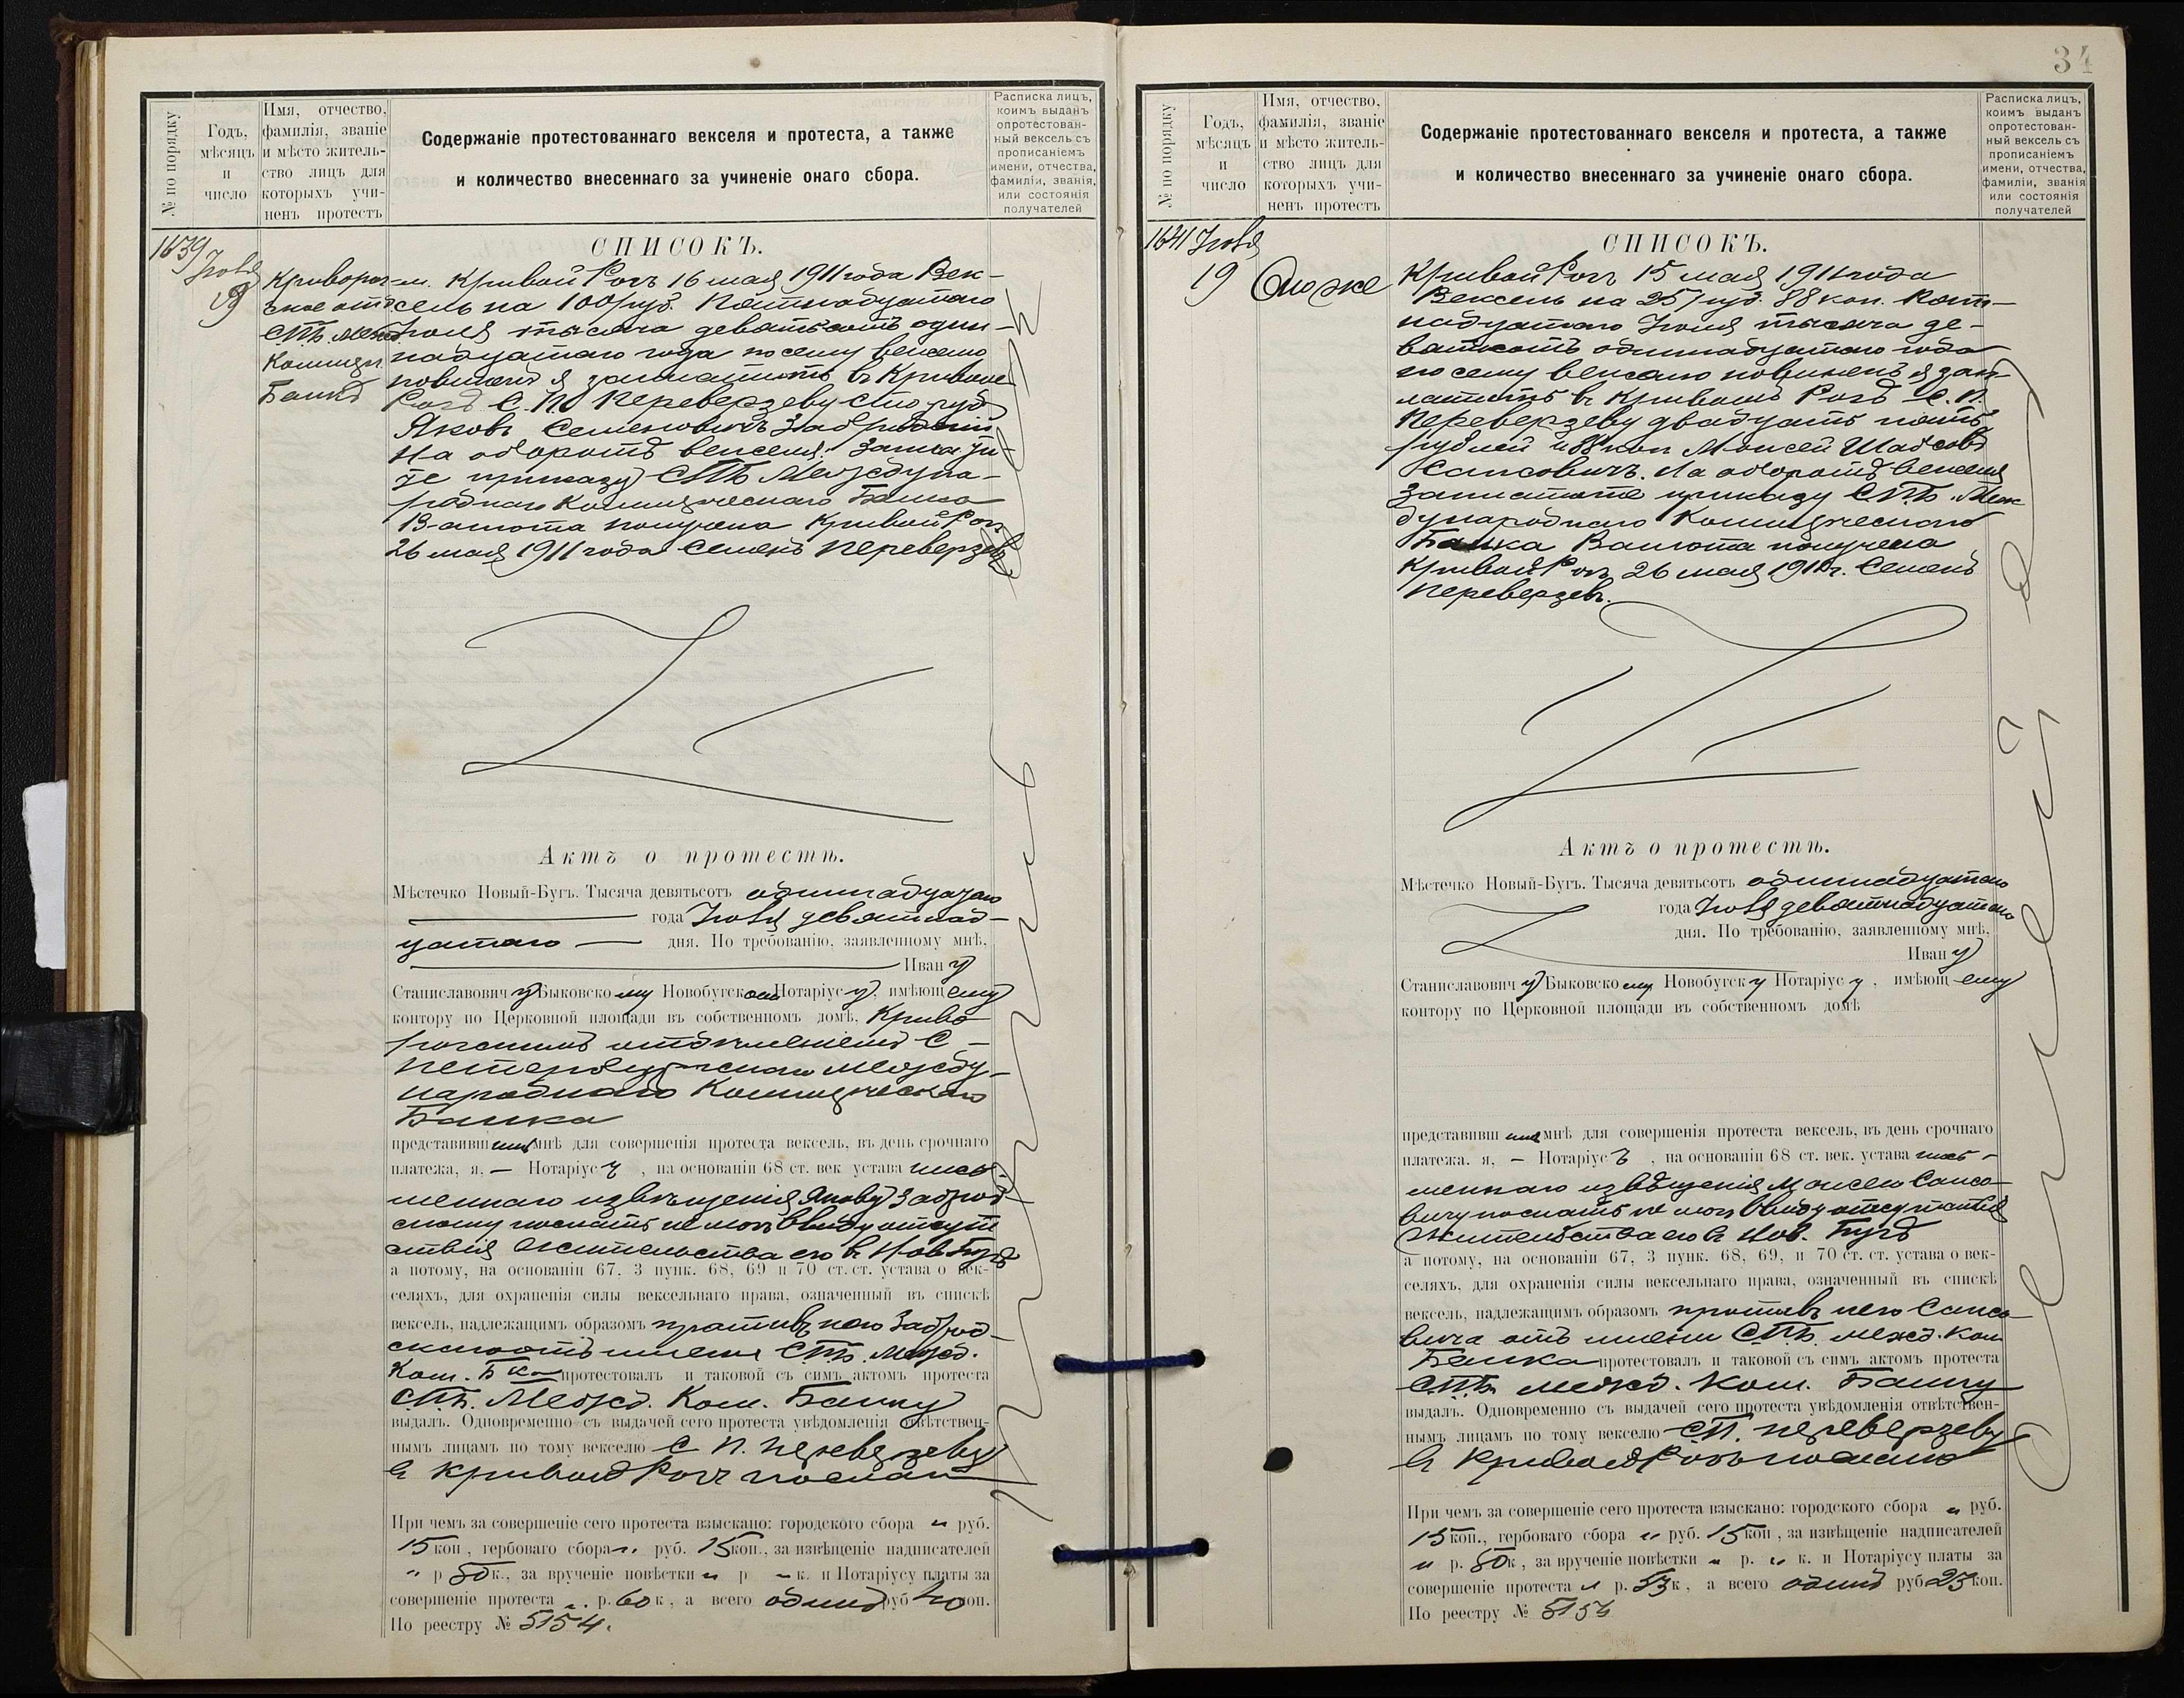 № по порядку
Годъ,
мѣсяцъ
и
число
Имя, отчество,
фамилія, званіе
и мѣсто житель-
ство лицъ для
которыхъ учи-
ненъ протестъ
Содержаніе протестованнаго векселя и протеста, а также
и количество внесеннаго за учиненіе онаго сбора.
Расписка лицъ,
коимъ выданъ
опротестован-
ный вексель съ
прописаніемъ
имени, отчества,
фамиліи, званія,
или состоянія
получателей
1639
19
СПб. Межд
Банкъ
СПИСОКЪ.
м. Кривой Рогъ 16 мая 1911 года Век-
сель на 100 руб. Пятнадцатаго
Іюля тысяча девятьсотъ один-
надцатаго года по сему векселю
повиненъ я заплатить въ Кривомъ
Рогѣ С. П. Переверзеву сто руб
Яковъ Семеновичъ
На оборотѣ векселя:
приказу СПБ Междуна-
роднаго Коммерческаго Банка
Валюта получена Кривой Рогъ
26 мая 1911 года Семенъ Переверзевъ
Актъ о протестѣ.
Мѣстечко Новый-Бугъ. Тысяча девятьсотъ одиннадцатаго
года Іюля девятнад-
цатаго дня. По требованію, заявленному мнѣ,
Ивану
Станиславовичу Быковскому Новобугскому Нотаріусу, имѣющему
контору по Церковной площади въ собственномъ домѣ, Криво-
рогскимъ отдѣленіемъ С-
Петербургскаго Между-
народнаго Коммерческаго
Банка
представившимъ мнѣ для совершенія протеста вексель, въ день срочнаго
платежа, я, — Нотаріусъ, на основаніи 68 ст. век устава пись-
меннаго извѣщенія Якову
скому послать не могъ ввиду отсут
ствія жительства его въ Нов. Бугѣ
а потому, на основаніи 67. 3 пунк. 68, 69 и 70 ст. ст. устава о век-
селяхъ, для охраненія силы вексельнаго права, означенный въ спискѣ
вексель, надлежащимъ образомъ противъ него
имени СПб. Межд.
Ком. Бка протестовалъ и таковой съ симъ актомъ протеста
СПБ. Межд. Ком. Банку
выдалъ. Одновременно съ выдачей сего протеста увѣдомленія отвѣтствен-
нымъ лицамъ по тому векселю С П. Переверзеву
въ Кривой Рогъ
При чемъ за совершеніе сего протеста взыскано: городского сбора " руб.
15 коп, гербоваго сбора " руб. 15 коп., за извѣщеніе надписателей
" р 50 к., за врученіе повѣстки " р " к. и Нотаріусу платы за
совершеніе протеста " р. 60 к, а всего одинъ руб 40 коп.
По реестру № 5154.
34
№ по порядку
Годъ,
мѣсяцъ
и
число
Имя, отчество,
фамилія, званіе
и мѣсто житель-
ство лицъ для
которыхъ учи-
ненъ протестъ
Содержаніе протестованнаго векселя и протеста, а также
и количество внесеннаго за учиненіе онаго сбора.
Расписка лицъ,
коимъ выданъ
опротестован-
ный вексель съ
прописаніемъ
имени, отчества,
фамиліи, званія
или состоянія
получателей
1641 Іюля
19 Оноже
СПИСОКЪ.
Кривой Рогъ 15 мая 1911 года
Вексель на 25 руб. 88 коп. Пят-
надцатаго Іюля тысяча де-
вятьсотъ одиннадцатаго года
по сему векселю повиненъ я зап-
латить въ Кривомъ Рогѣ С. П.
Переверзеву двадцать пять
рублей и 88 коп Моисей
Сапсовичъ. На оборотѣ векселя
приказу СПБ. Меж
дународнаго Коммерческаго
Банка Валюта получена
Кривой Рогъ 26 мая 1911 г. Семенъ
Переверзевъ.
Актъ о протестѣ.
Мѣстечко Новый-Бугъ. Тысяча девятьсотъ одиннадцатаго
года Іюля девятнадцатаго
дня. По требованію, заявленному мнѣ,
Ивану
Станиславовичу Быковскому Новобугску Нотаріусу, имѣющему
контору по Церковной площади въ собственномъ домѣ
представившимъ мнѣ для совершенія протеста вексель, въ день срочнаго
платежа. я, — Нотаріусъ, на основаніи 68 ст. век. устава пись-
меннаго извѣщенія Моисею Сапсо-
вичу послать не могъ ввиду отсутствія
жительства его въ Нов. Бугѣ
а потому, на основаніи 67, 3 пунк. 68, 69, и 70 ст. ст. устава о век-
селяхъ, для охраненія силы вексельнаго права, означенный въ спискѣ
вексель, надлежащимъ образомъ противъ него Сапсо-
вича отъ имени СПБ. Межд. Ком
Банка протестовалъ и таковой съ симъ актомъ протеста
СПБ. Межд. Ком. Банку
выдалъ. Одновременно съ выдачей сего протеста увѣдомленія отвѣтствен-
нымъ лицамъ по тому векселю С.П. Переверзеву
въ Кривой Рогъ послано
При чемъ за совершеніе сего протеста взыскано: городского сбора " руб.
15 коп., гербоваго сбора " руб. 15 коп, за извѣщеніе надписателей
" р. 50 к, за врученіе повѣстки " р. " к. и Нотаріусу платы за
совершеніе протеста " р. 53 к, а всего одинъ руб 23 коп.
По реестру №